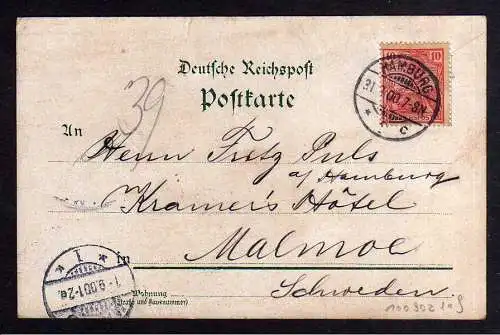 Deutsche Reichspost
Postkarte
39
An
Herrn Fritz Puls
a/Hamburg
Kramer's Hôtel
in Malmoe
Wohnung
(Straße und Hausnummer)
Schweden.
HAMBURG
31 00.7-8N.
* c
10 10
* 1 *
1.9.00.1-2